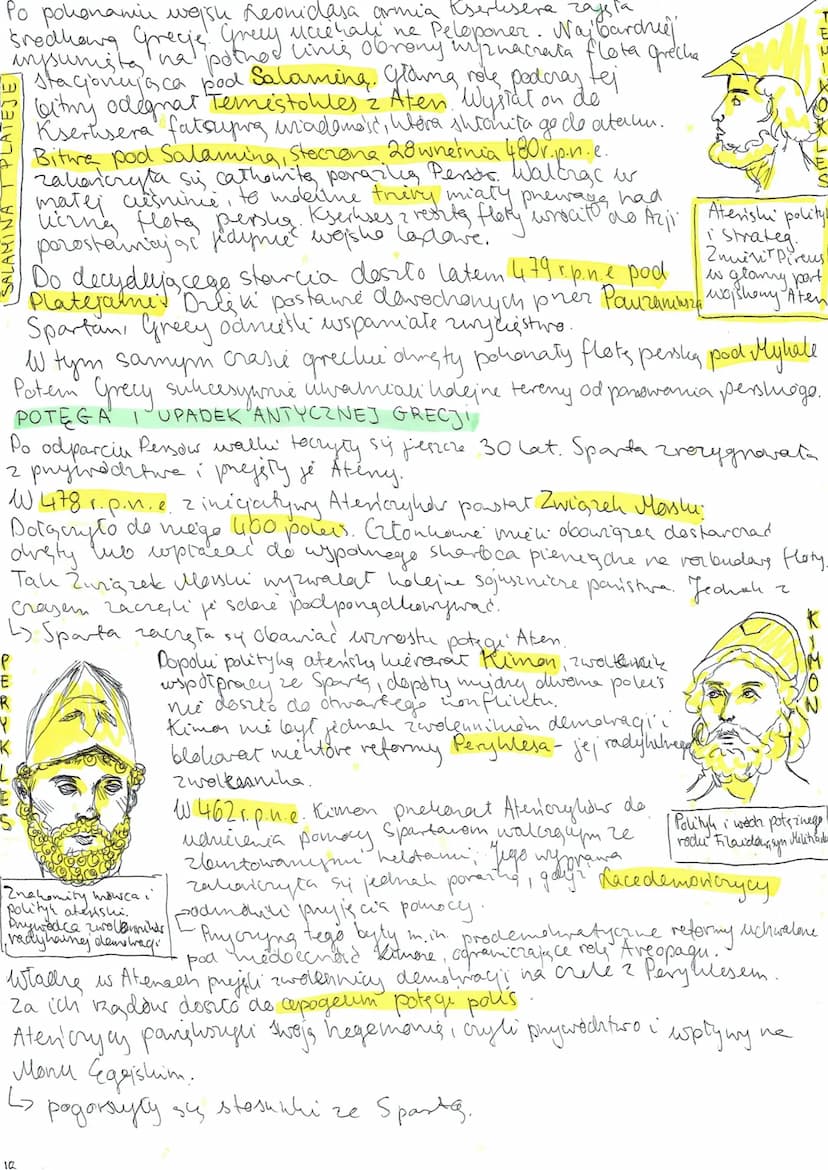 Po pokonaniu wojsk Leonidasa armia Kserksesa zajęła
środkową Grecję. Grecy uciekali na Peloponez. Najbardziej
wysuniętą na północ linię obrony wyznaczała flota grecka
stacjonująca pod Salaminą. Główną rolę podczas tej
bitwy odegrał Temistokles z Aten. Wysłał on do
Kserksesa fałszywą wiadomość, która skłoniła go do ataku.
Bitwa pod Salaminą, stoczona 28 września 480 r.p.n.e.
zakończyła się całkowitą porażką Persów. Walcząc w
małej cieśninie, to mobilne triery miały przewagę nad
liczną flotą perską. Kserkses z resztą floty wrócił do Azji
pozostawiając jedynie wojska lądowe.
SALAMINA I PLATEJE
TEMISTOKLES
Ateński polityk
i strateg.
Zmienił Pireus
w główny port
wojskowy Aten
Do decydującego starcia doszło latem 479 r.p.n.e pod
Platejami. Dzięki postawie dowodzonych przez Pauzaniasza
Spartan, Grecy odnieśli wspaniałe zwycięstwo.
W tym samym czasie greckie okręty pokonały flotę perską pod Mykale
Potem Grecy sukcesywnie uwalniali kolejne tereny od panowania perskiego.
POTĘGA I UPADEK ANTYCZNEJ GRECJI
Po odparciu Persów walki toczyły się jeszcze 30 lat. Sparta zrezygnowała
z przywództwa i przejęły je Ateny.
W 478 r.p.n.e. z inicjatywy Ateńczyków powstał Związek Morski.
Dołączyło do niego 400 poleis. Członkowie mieli obowiązek dostarczać
okręty lub wpłacać do wspólnego skarbca pieniądze na rozbudowę floty.
Tak Związek Morski wyzwalał kolejne sojusznicze państwa. Jednak z
czasem zaczęli je sobie podporządkowywać.
↳ Sparta zaczęła się obawiać wzrostu potęgi Aten.
Dopóki polityką ateńską kierował Kimon, zwolennik
współpracy ze Spartą, dopóty między dwoma poleis
nie doszło do otwartego konfliktu.
Kimon nie był jednak zwolennikiem demokracji i
blokował niektóre reformy Peryklesa - jej radykalnego
zwolennika.
PERYKLES
Znakomity mówca i
polityk ateński.
Przywódca zwolenników
radykalnej demokracji
KIMON
Polityk i wódz potężnego
rodu Filaidów, syn Miltiadesa
W 462 r.p.n.e. Kimon przekonał Ateńczyków do
udzielenia pomocy Spartanom walczącym ze
zbuntowanymi helotami, jego wyprawa
zakończyła się jednak porażką, gdyż Lacedemończycy
odmówili przyjęcia pomocy.
↳ Przyczyną tego były m.in. prodemokratyczne reformy uchwalone
pod nieobecność Kimona, ograniczające rolę Areopagu.
Władzę w Atenach przejęli zwolennicy demokracji na czele z Peryklesem.
Za ich rządów doszło do apogeum potęgi polis.
Ateńczycy powiększyli swoją hegemonię, czyli przywództwo i wpływy na
Morzu Egejskim.
↳ pogorszyły się stosunki ze Spartą.